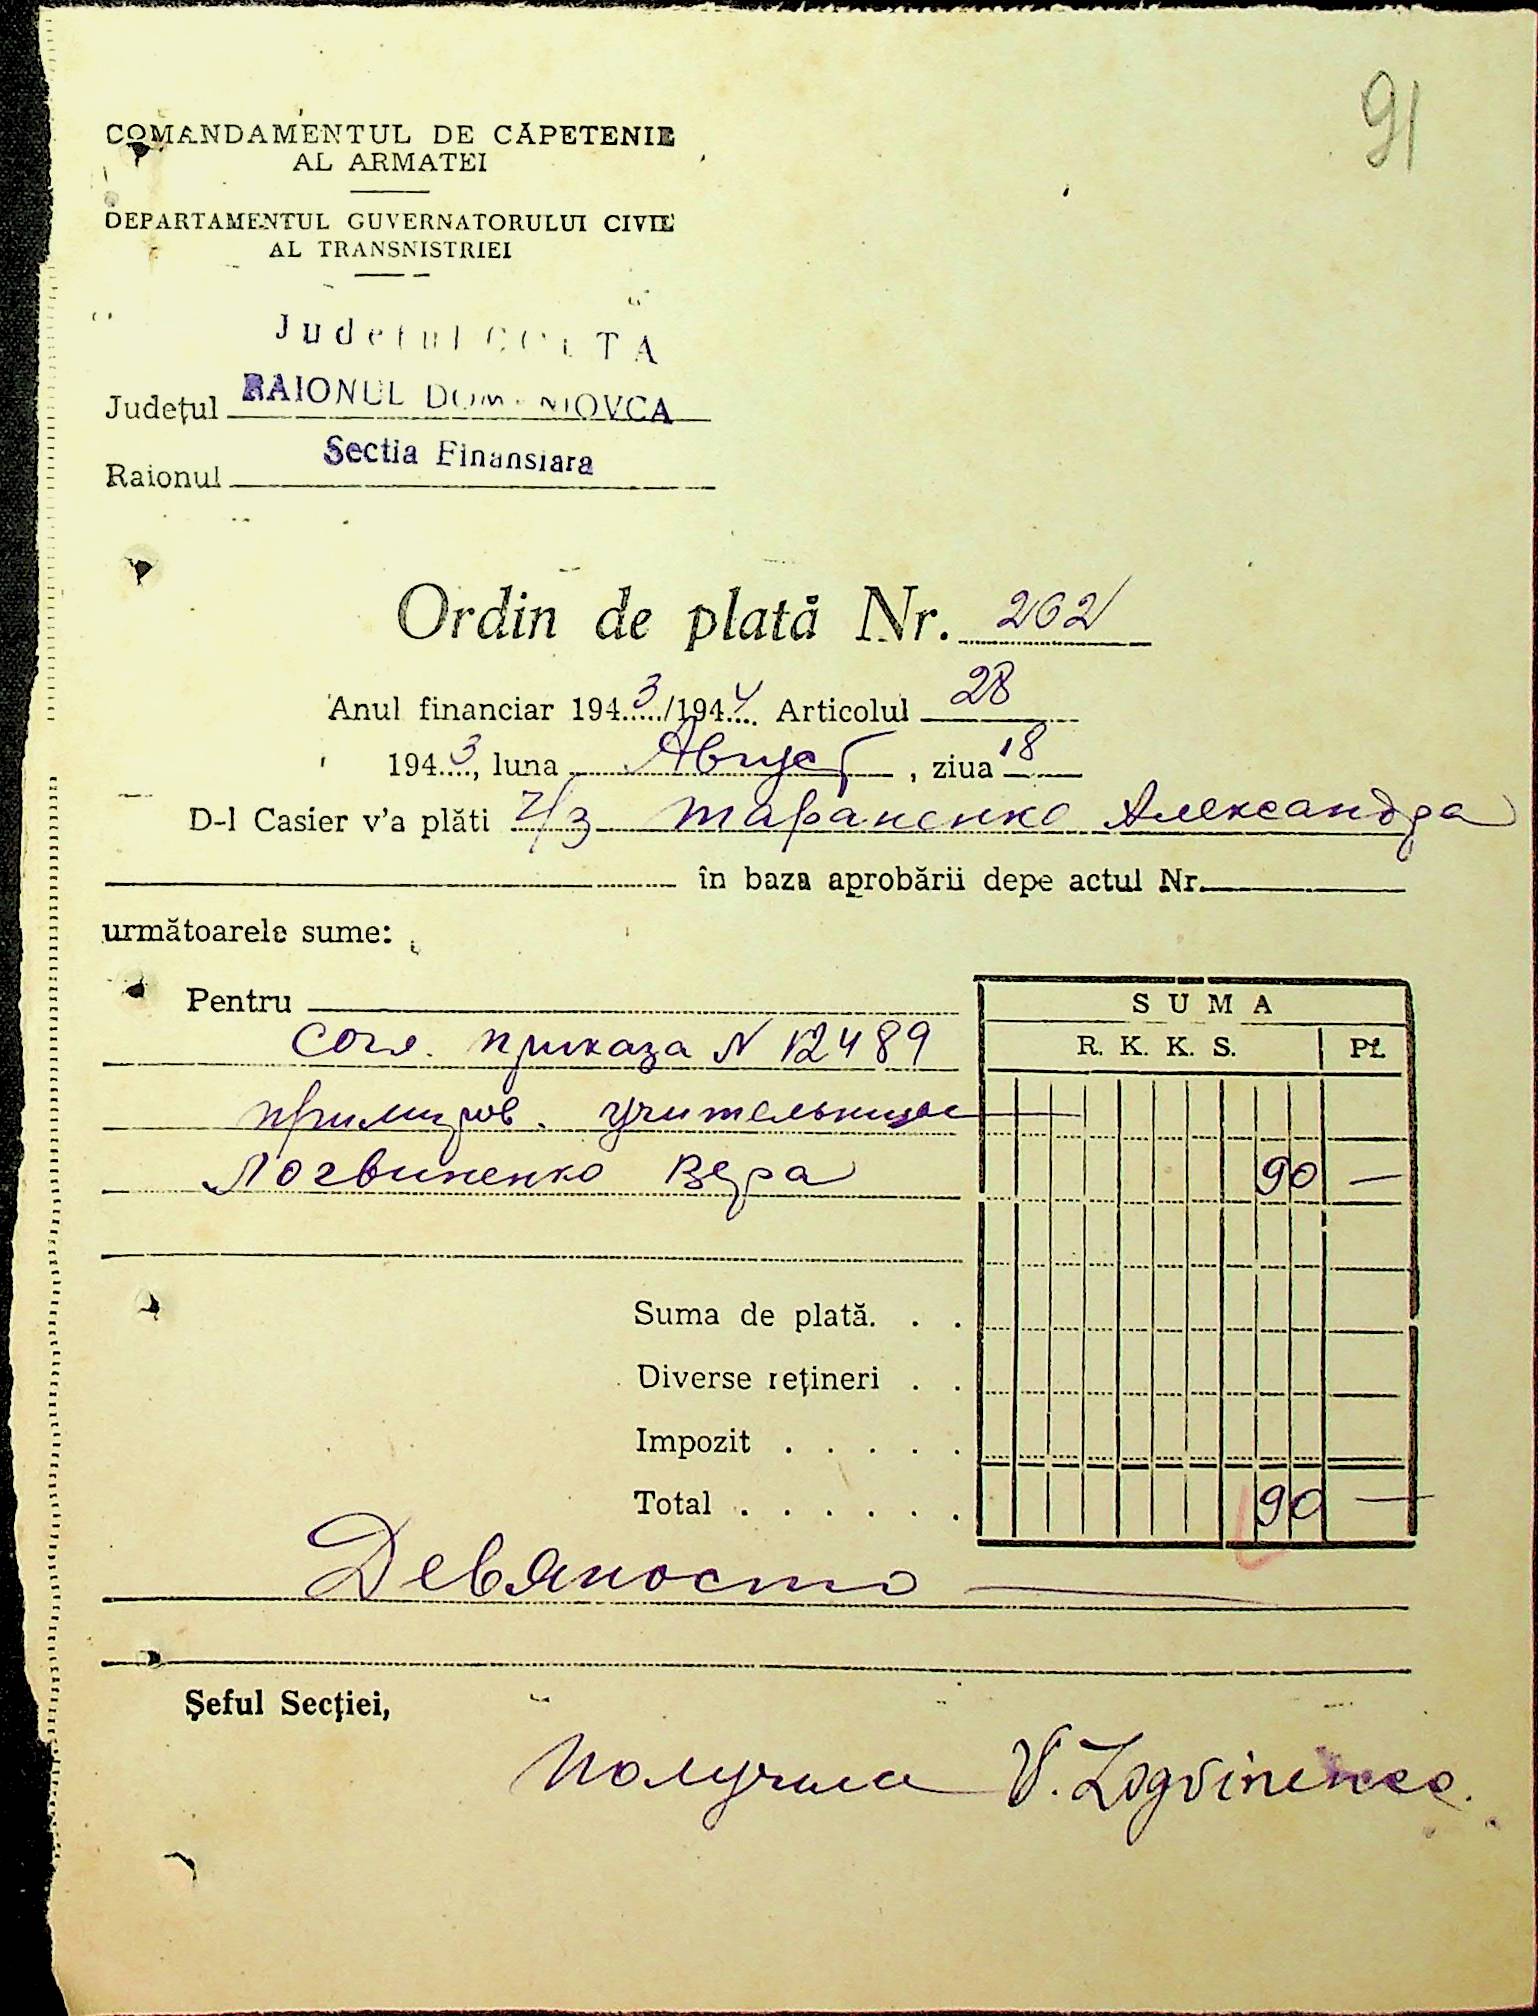 91
COMANDAMENTUL DE CĂPETENIE
AL ARMATEI
DEPARTAMENTUL GUVERNATORULUI CIVIL
AL TRANSNISTRIEI
Judetul GOLTA
Județul RAIONUL DOMANIOVCA
Raionul Sectia Finansiara
Ordin de plată Nr. 262
Anul financiar 1943/1944 Articolul 28
1943, luna Август, ziua 18
D-l Casier v'a plăti ч/з Тараненко Александра
în baza aprobării depe actul Nr.
următoarele sume:
Pentru
SUMA
согл. приказа N 12489
R. K. K. S. Pf.
учительнице
Логвиненко Вера 90 —
Suma de plată. . .
Diverse rețineri . .
Impozit . . . . .
Total . . . . . . 90 —
Девяносто —
Șeful Secției,
Получила V. Logvinenco.